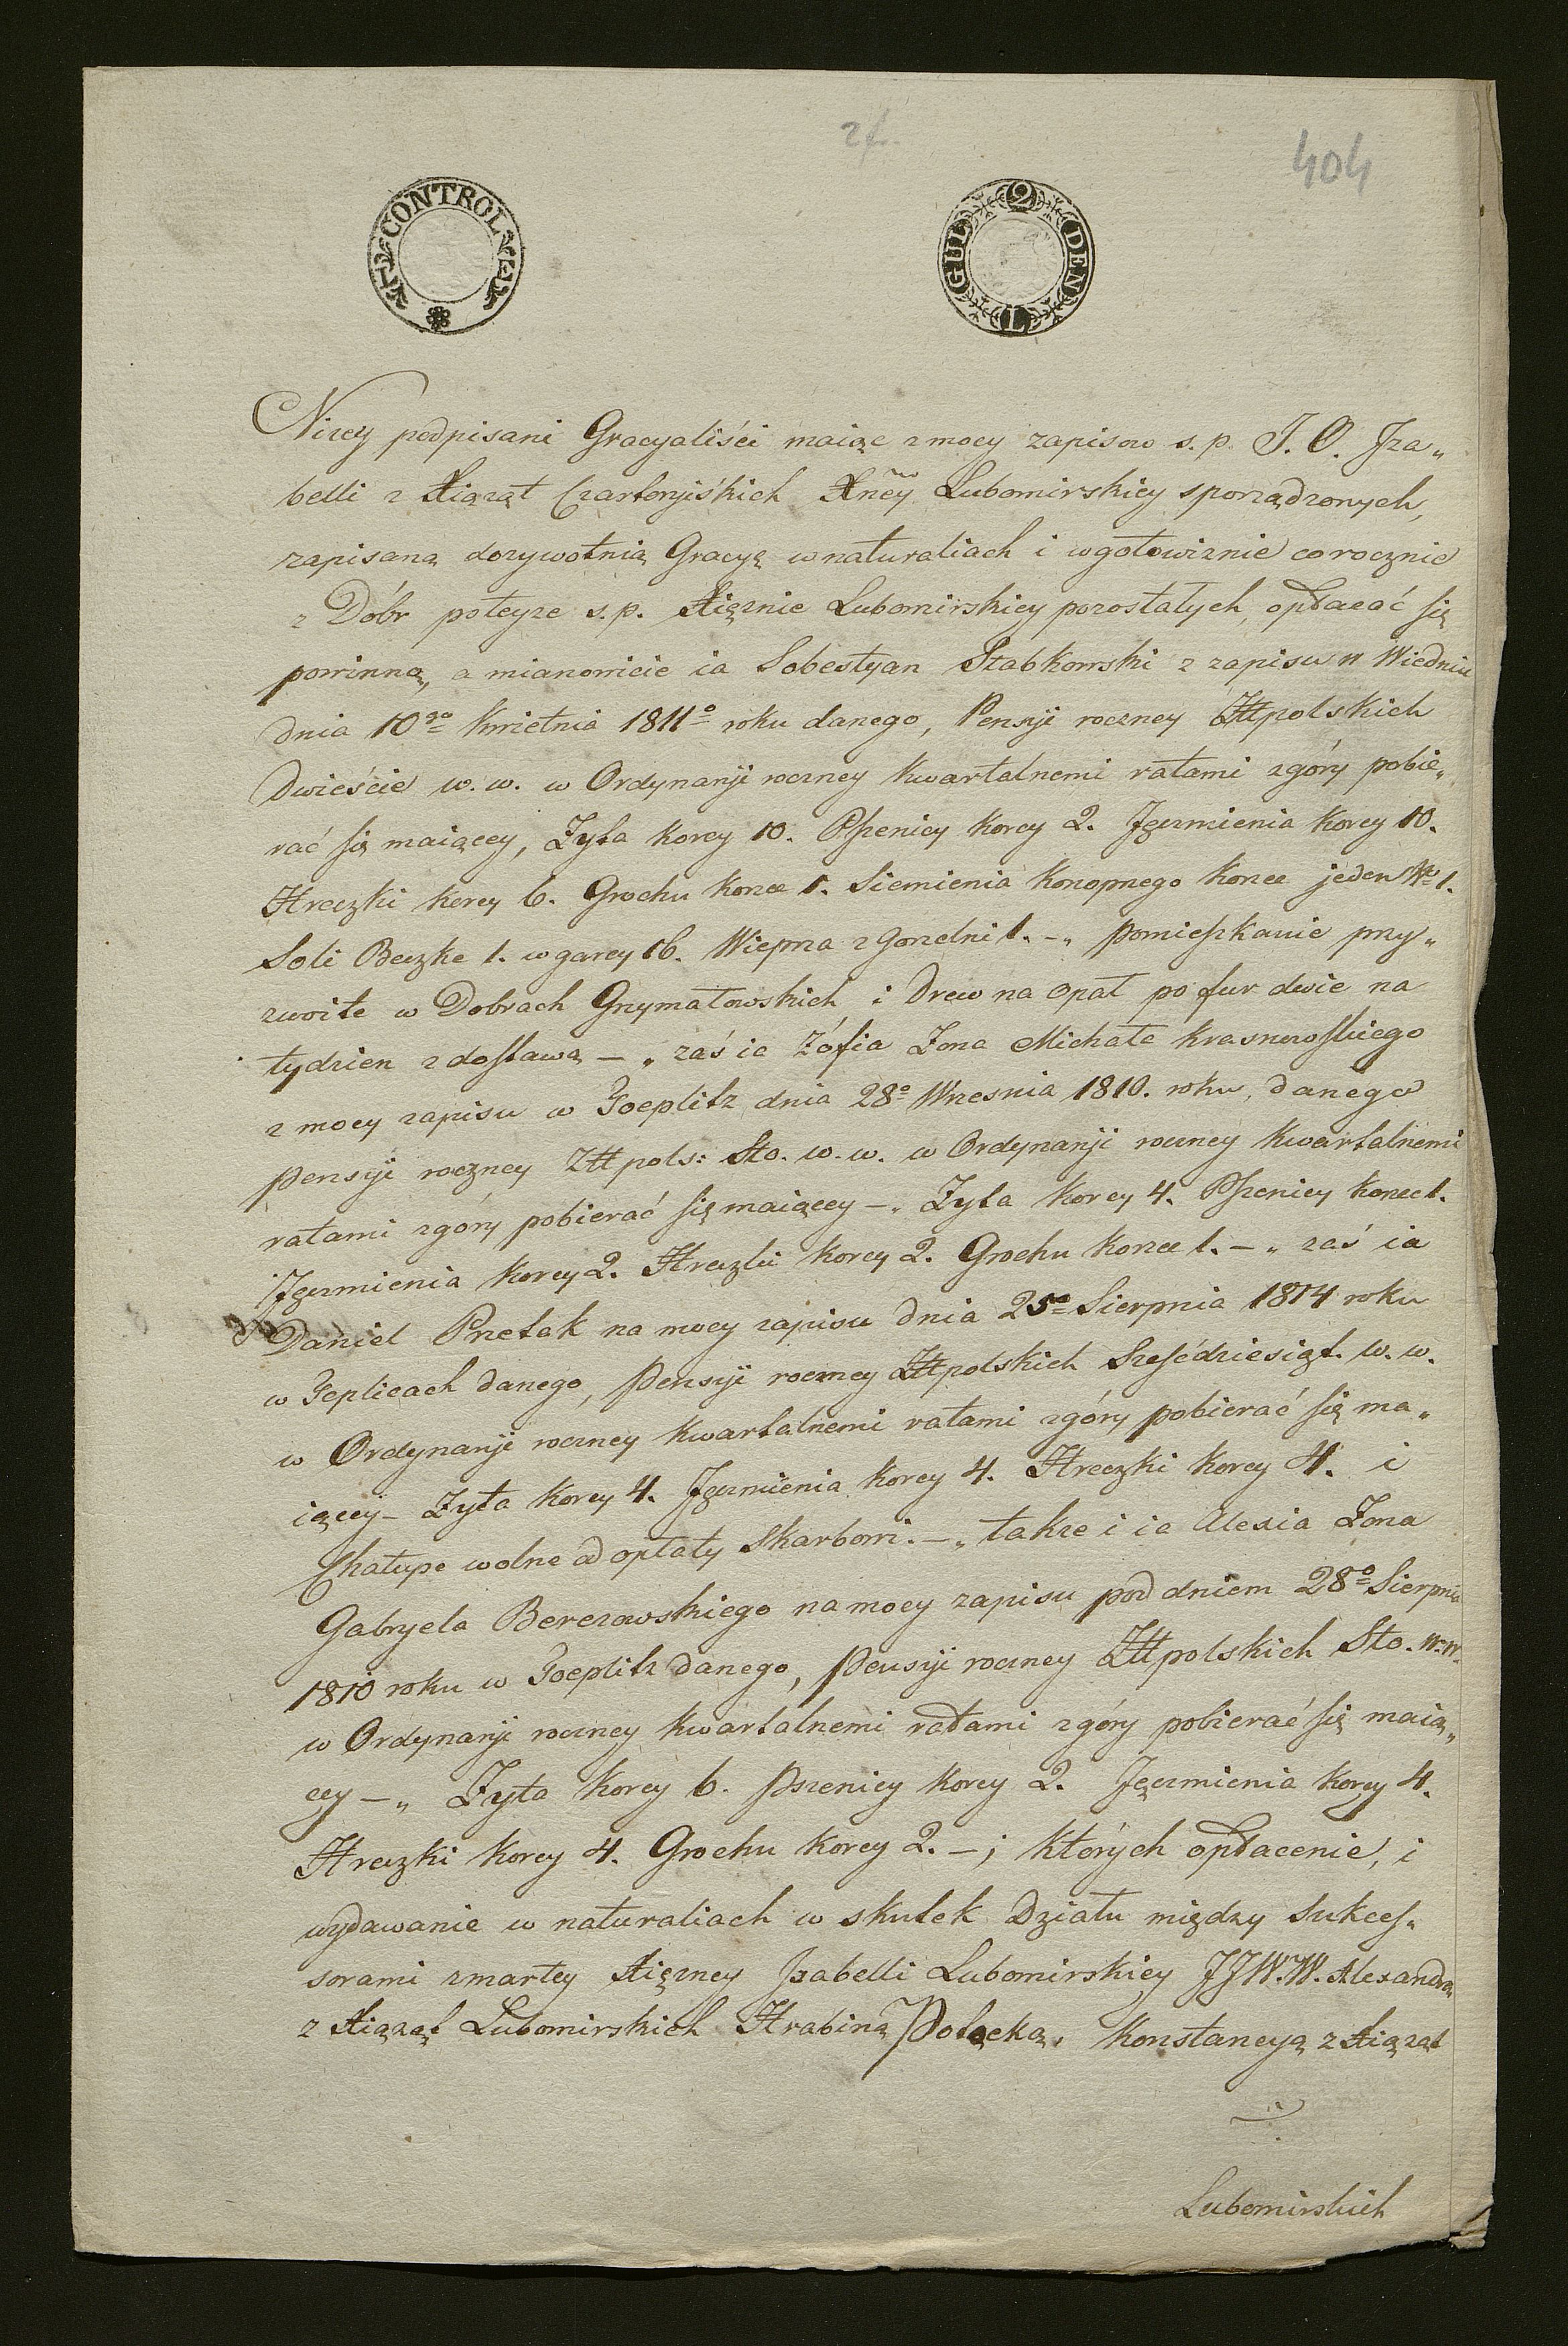 2 f.
404
CONTROL
2 GULDEN
Nizey podpisani Gracyaliści maiąc z mocy zapisow s. p. J. O. Iza„
belli z Xiąząt Czartoryiskich Xney Lubomirskiey sporządzonych,
zapisaną dozywotnią Gracyą w naturaliach i w gotowiznie corocznie
z Dóbr poteyze s. p. Xięznie Lubomirskiey pozostałych, opłacać się
powinną, a mianowicie ia Sobestyan Słabkowski z zapisu w Wiedniu
dnia 10go Kwietnia 1811o roku danego, Pensyi roczney Złł polskich
Dwieście w. w. w Ordynaryi roczney kwartalnemi ratami zgóry pobie„
rać się maiącey, Zyta Korcy 10. Pszenicy Korcy 2. Jęczmienia Korcy 10.
Hreczki Korcy 6. Grochu Korzec 1. Siemienia Konopnego Korzec jeden No 1.
Soli Beczke 1. w garcy 16. Wieprza z Gorzelni 1. –„ pomieszkanie przy„
zwoite w Dobrach Grzymałowskich i Drew na opał po fur dwie na
tydzien z dostawą – „ zaś ia Zófia Zona Michała Krasnowskiego
z mocy zapisu w Toeplitz dnia 28o Wrzesnia 1810. roku, danego
pensyi roczney Złł pols: Sto. w. w. w Ordynaryi roczney Kwartalnemi
ratami zgóry pobierać się maiącey –„ Zyta Korcy 4. Pszenicy Korzec 1.
Jęczmienia Korcy 2. Hreczki Korcy 2. Grochu Korzec 1. – „ zaś ia
Daniel Przetak na mocy zapisu dnia 25o Sierpnia 1814 roku
w Teplicach danego, Pensyi roczney Złł polskich Sześćdziesiąt. w. w.
w Ordynaryi roczney kwartalnemi ratami zgóry pobierać się ma„
iącey – Zyta Korcy 4. Jęczmienia Korcy 4. Hreczki Korcy 4. i
Chałupe wolne od opłaty Skarbowi. –„ takze i ia Alexia Zona
Gabryela Berezowskiego na mocy zapisu pod dniem 28o Sierpnia
1810 roku w Toeplitz danego, Pensyi roczney Złł polskich Sto. w. w.
w Ordynaryi roczney kwartalnemi ratami zgóry pobierać się maią„
cey – „ Zyta Korcy 6. Pszenicy Korcy 2. Jęczmienia Korcy 4.
Hreczki Korcy 4. Grochu Korcy 2. – ; których opłacenie, i
wydawanie w naturaliach w skutek Działu między Sukces„
sorami zmarłey Xięzney Izabelli Lubomirskiey JJ W. W. Alexandrą
z Xiąząt Lubomirskich Hrabiną Potocką, Konstancyą z Xiąząt
Lubomirskich